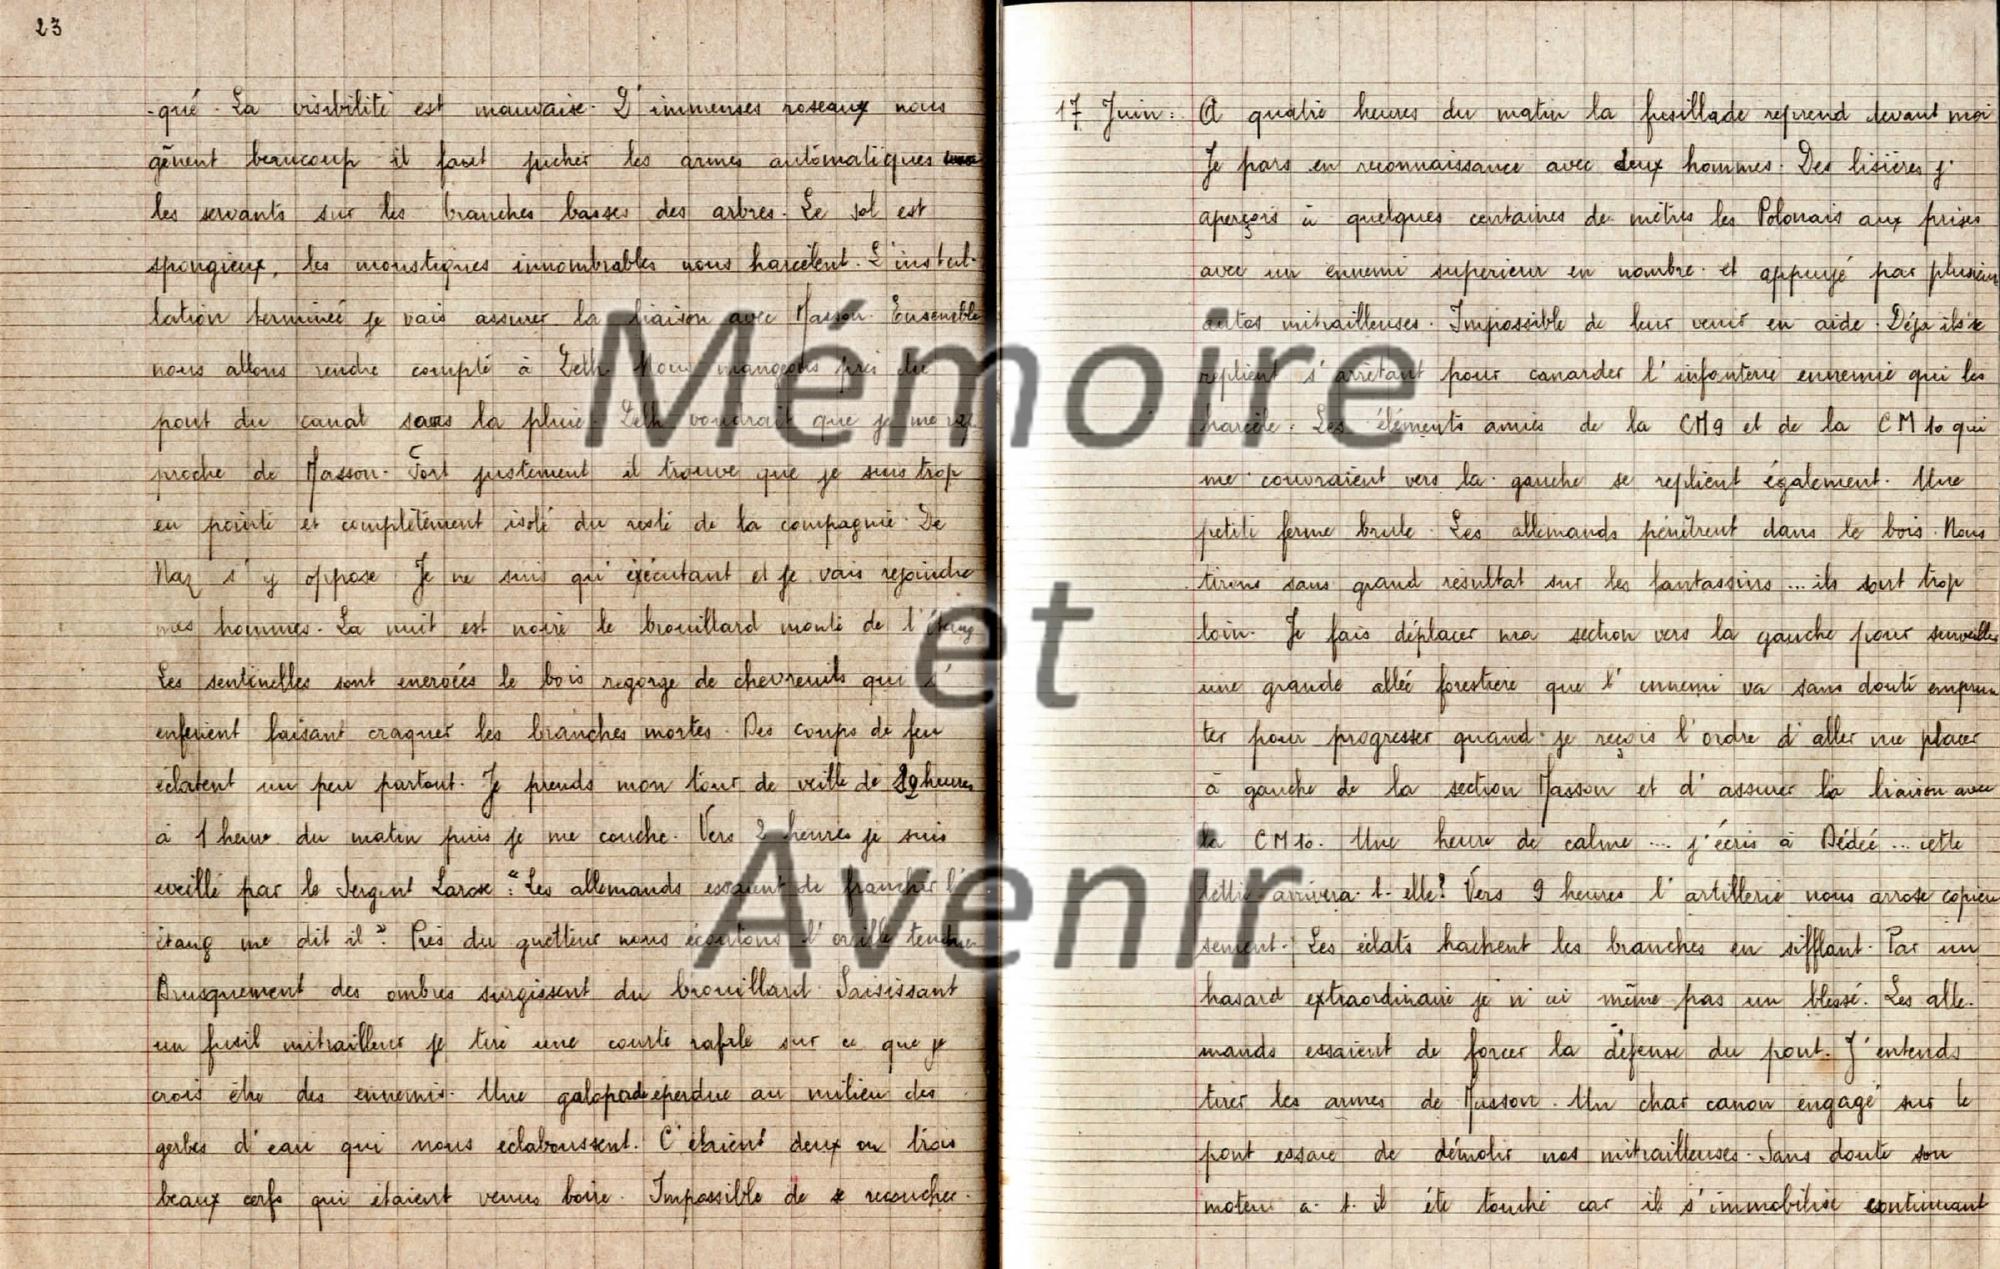 23
-qué. La visibilité est mauvaise. D'immenses roseaux nous
gênent beaucoup il faut jucher les armes automatiques
les servants sur les branches basses des arbres. Le sol est
spongieux, les moustiques innombrables nous harcèlent. L'instal-
lation terminée je vais assurer la liaison avec Masson. Ensemble
nous allons rendre compte à Zeth. Nous mangeons près du
pont du canal sous la pluie. Zeth voudrait que je me rap
proche de Masson. Fort justement il trouve que je suis trop
en pointe et complètement isolé du reste de la compagnie. De
Naz s'y oppose Je ne suis qu'exécutant et je vais rejoindre
mes hommes. La nuit est noire le brouillard monte de l'étang
Les sentinelles sont énervées le bois regorge de chevreuils qui s'
enfuient faisant craquer les branches mortes. Des coups de feu
éclatent un peu partout. Je prends mon tour de veille de heures
à 1 heure du matin puis je me couche. Vers 2 heures je suis
eveillé par le Sergent Larose : "Les allemands essaient de franchir l'
étang me dit il". Près du guetteur nous écoutons l'oreille tendue
Brusquement des ombres surgissent du brouillard Saisissant
un fusil mitrailleur je tire une courte rafale sur ce que je
crois être des ennemis. Une galopade éperdue au milieu des
gerbes d'eau qui nous eclaboussent. C'étaient deux ou trois
beaux cerfs qui étaient venus boire. Impossible de se recoucher.
17 Juin : A quatre heures du matin la fusillade reprend devant moi
Je pars en reconnaissance avec deux hommes. Des lisières j'
aperçois à quelques centaines de mètres les Polonais aux prises
avec un ennemi superieur en nombre et appuyé par plusieurs
autos mitrailleuses. Impossible de leur venir en aide. Déja ils se
replient s'arrêtant pour canarder l'infanterie ennemie qui les
harcèle. Les éléments amis de la CM9 et de la CM10 qui
me couvraient vers la gauche se replient également. Une
petite ferme brule. Les allemands pénètrent dans le bois. Nous
tirons sans grand résultat sur les fantassins ... ils sont trop
loin. Je fais déplacer ma section vers la gauche pour surveiller
une grande allée forestière que l'ennemi va sans doute emprun
ter pour progresser quand je reçois l'ordre d'aller me placer
à gauche de la section Masson et d'assurer la liaison avec
la CM10. Une heure de calme .... j'écris à Dédée ... cette
lettre arrivera-t-elle? Vers 9 heures l'artillerie nous arrose copieu
sement. Les éclats hachent les branches en sifflant. Par un
hasard extraordinaire je n'ai même pas un blessé. Les alle-
mands essaient de forcer la défense du pont. J'entends
tirer les armes de Masson. Un char canon engagé sur le
pont essaie de démolir nos mitrailleuses. Sans doute son
moteur a-t-il été touché car il s'immobilise continuant
Mémoire
et
Avenir